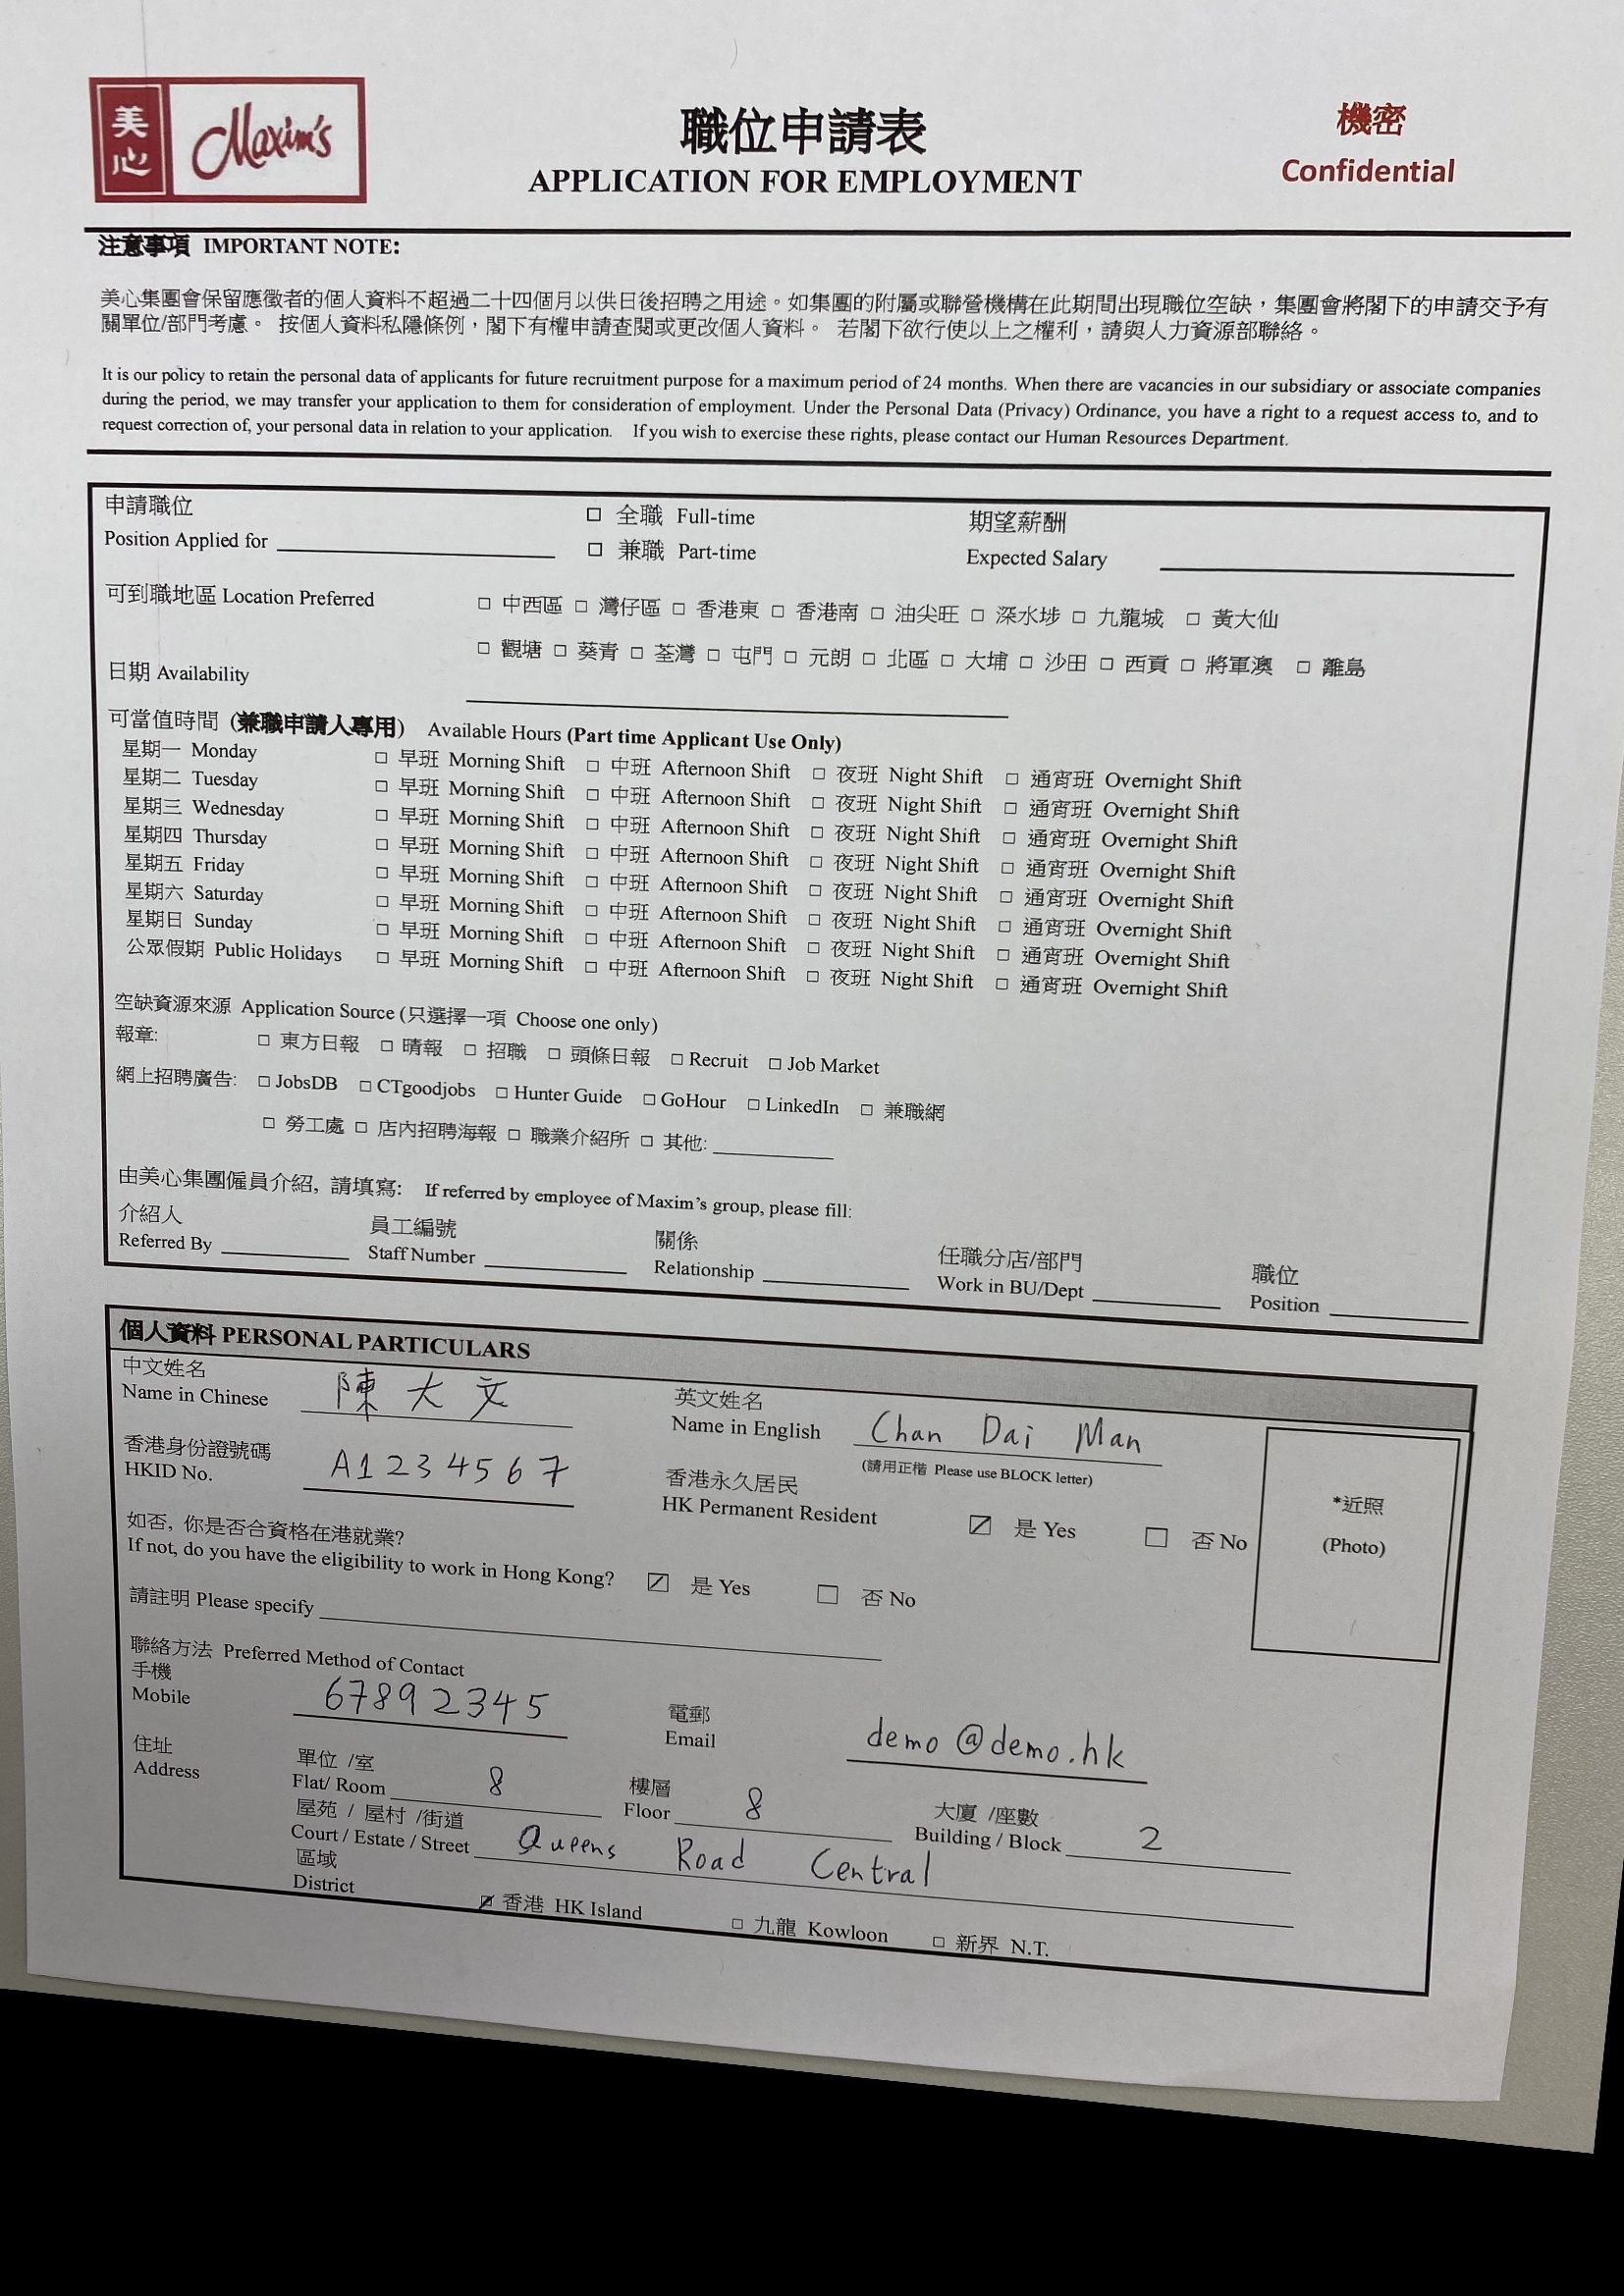 美心 Maxim's
職位申請表
APPLICATION FOR EMPLOYMENT
機密
Confidential
注意事項 IMPORTANT NOTE:
美心集團會保留應徵者的個人資料不超過二十四個月以供日後招聘之用途。如集團的附屬或聯營機構在此期間出現職位空缺，集團會將閣下的申請交予有
關單位/部門考慮。 按個人資料私隱條例，閣下有權申請查閱或更改個人資料。 若閣下欲行使以上之權利，請與人力資源部聯絡。
It is our policy to retain the personal data of applicants for future recruitment purpose for a maximum period of 24 months. When there are vacancies in our subsidiary or associate companies
during the period, we may transfer your application to them for consideration of employment. Under the Personal Data (Privacy) Ordinance, you have a right to a request access to, and to
request correction of, your personal data in relation to your application. If you wish to exercise these rights, please contact our Human Resources Department.
申請職位 □ 全職 Full-time 期望薪酬
Position Applied for □ 兼職 Part-time Expected Salary
可到職地區 Location Preferred □ 中西區 □ 灣仔區 □ 香港東 □ 香港南 □ 油尖旺 □ 深水埗 □ 九龍城 □ 黃大仙
□ 觀塘 □ 葵青 □ 荃灣 □ 屯門 □ 元朗 □ 北區 □ 大埔 □ 沙田 □ 西貢 □ 將軍澳 □ 離島
日期 Availability
可當值時間 (兼職申請人專用) Available Hours (Part time Applicant Use Only)
星期一 Monday □ 早班 Morning Shift □ 中班 Afternoon Shift □ 夜班 Night Shift □ 通宵班 Overnight Shift
星期二 Tuesday □ 早班 Morning Shift □ 中班 Afternoon Shift □ 夜班 Night Shift □ 通宵班 Overnight Shift
星期三 Wednesday □ 早班 Morning Shift □ 中班 Afternoon Shift □ 夜班 Night Shift □ 通宵班 Overnight Shift
星期四 Thursday □ 早班 Morning Shift □ 中班 Afternoon Shift □ 夜班 Night Shift □ 通宵班 Overnight Shift
星期五 Friday □ 早班 Morning Shift □ 中班 Afternoon Shift □ 夜班 Night Shift □ 通宵班 Overnight Shift
星期六 Saturday □ 早班 Morning Shift □ 中班 Afternoon Shift □ 夜班 Night Shift □ 通宵班 Overnight Shift
星期日 Sunday □ 早班 Morning Shift □ 中班 Afternoon Shift □ 夜班 Night Shift □ 通宵班 Overnight Shift
公眾假期 Public Holidays □ 早班 Morning Shift □ 中班 Afternoon Shift □ 夜班 Night Shift □ 通宵班 Overnight Shift
空缺資源來源 Application Source (只選擇一項 Choose one only)
報章: □ 東方日報 □ 晴報 □ 招職 □ 頭條日報 □ Recruit □ Job Market
網上招聘廣告: □ JobsDB □ CTgoodjobs □ Hunter Guide □ GoHour □ LinkedIn □ 兼職網
□ 勞工處 □ 店內招聘海報 □ 職業介紹所 □ 其他:
由美心集團僱員介紹, 請填寫: If referred by employee of Maxim's group, please fill:
介紹人 員工編號 關係 任職分店/部門 職位
Referred By Staff Number Relationship Work in BU/Dept Position
個人資料 PERSONAL PARTICULARS
中文姓名 英文姓名
Name in Chinese 陳大文 Name in English Chan Dai Man
(請用正楷 Please use BLOCK letter)
香港身份證號碼 香港永久居民
HKID No. A1234567 HK Permanent Resident ☑ 是 Yes □ 否 No
*近照
(Photo)
如否, 你是否合資格在港就業?
If not, do you have the eligibility to work in Hong Kong? ☑ 是 Yes □ 否 No
請註明 Please specify
聯絡方法 Preferred Method of Contact
手機 電郵
Mobile 67892345 Email demo@demo.hk
住址 單位 /室 樓層 大廈 /座數
Address Flat/ Room 8 Floor 8 Building / Block 2
屋苑 / 屋村 /街道
Court / Estate / Street Queens Road Central
區域
District ☑ 香港 HK Island □ 九龍 Kowloon □ 新界 N.T.